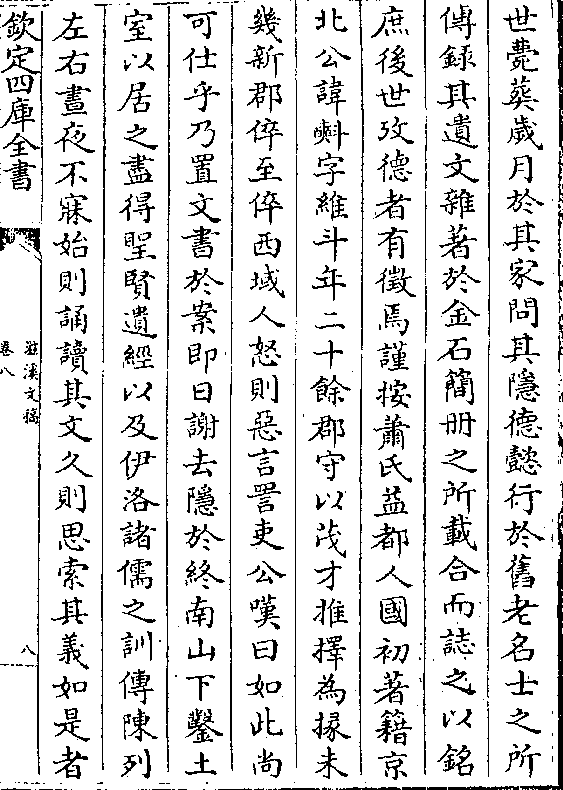 世薨葬歲月於其家問其隱德懿行於舊老名士之所
傳録其遺文雜著於金石簡冊之所載合而誌之以銘
庶後世攷德者有徵焉謹按蕭氏益都人國初著籍京
北公諱㪺字維斗年二十餘郡守以茂才推擇為掾未
幾新郡倅至倅西域人怒則惡言詈吏公嘆曰如此尚
可仕乎乃置文書於案即日謝去隱於終南山下鑿土
室以居之盡得聖賢遺經以及伊洛諸儒之訓傳陳列
左右晝夜不寐始則誦讀其文久則思索其義如是者
欽定四庫全書
滋溪文稿
卷八
八